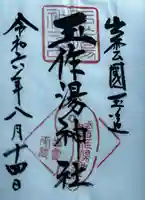 出雲國玉造
玉作湯神社
令和六年八月十四日